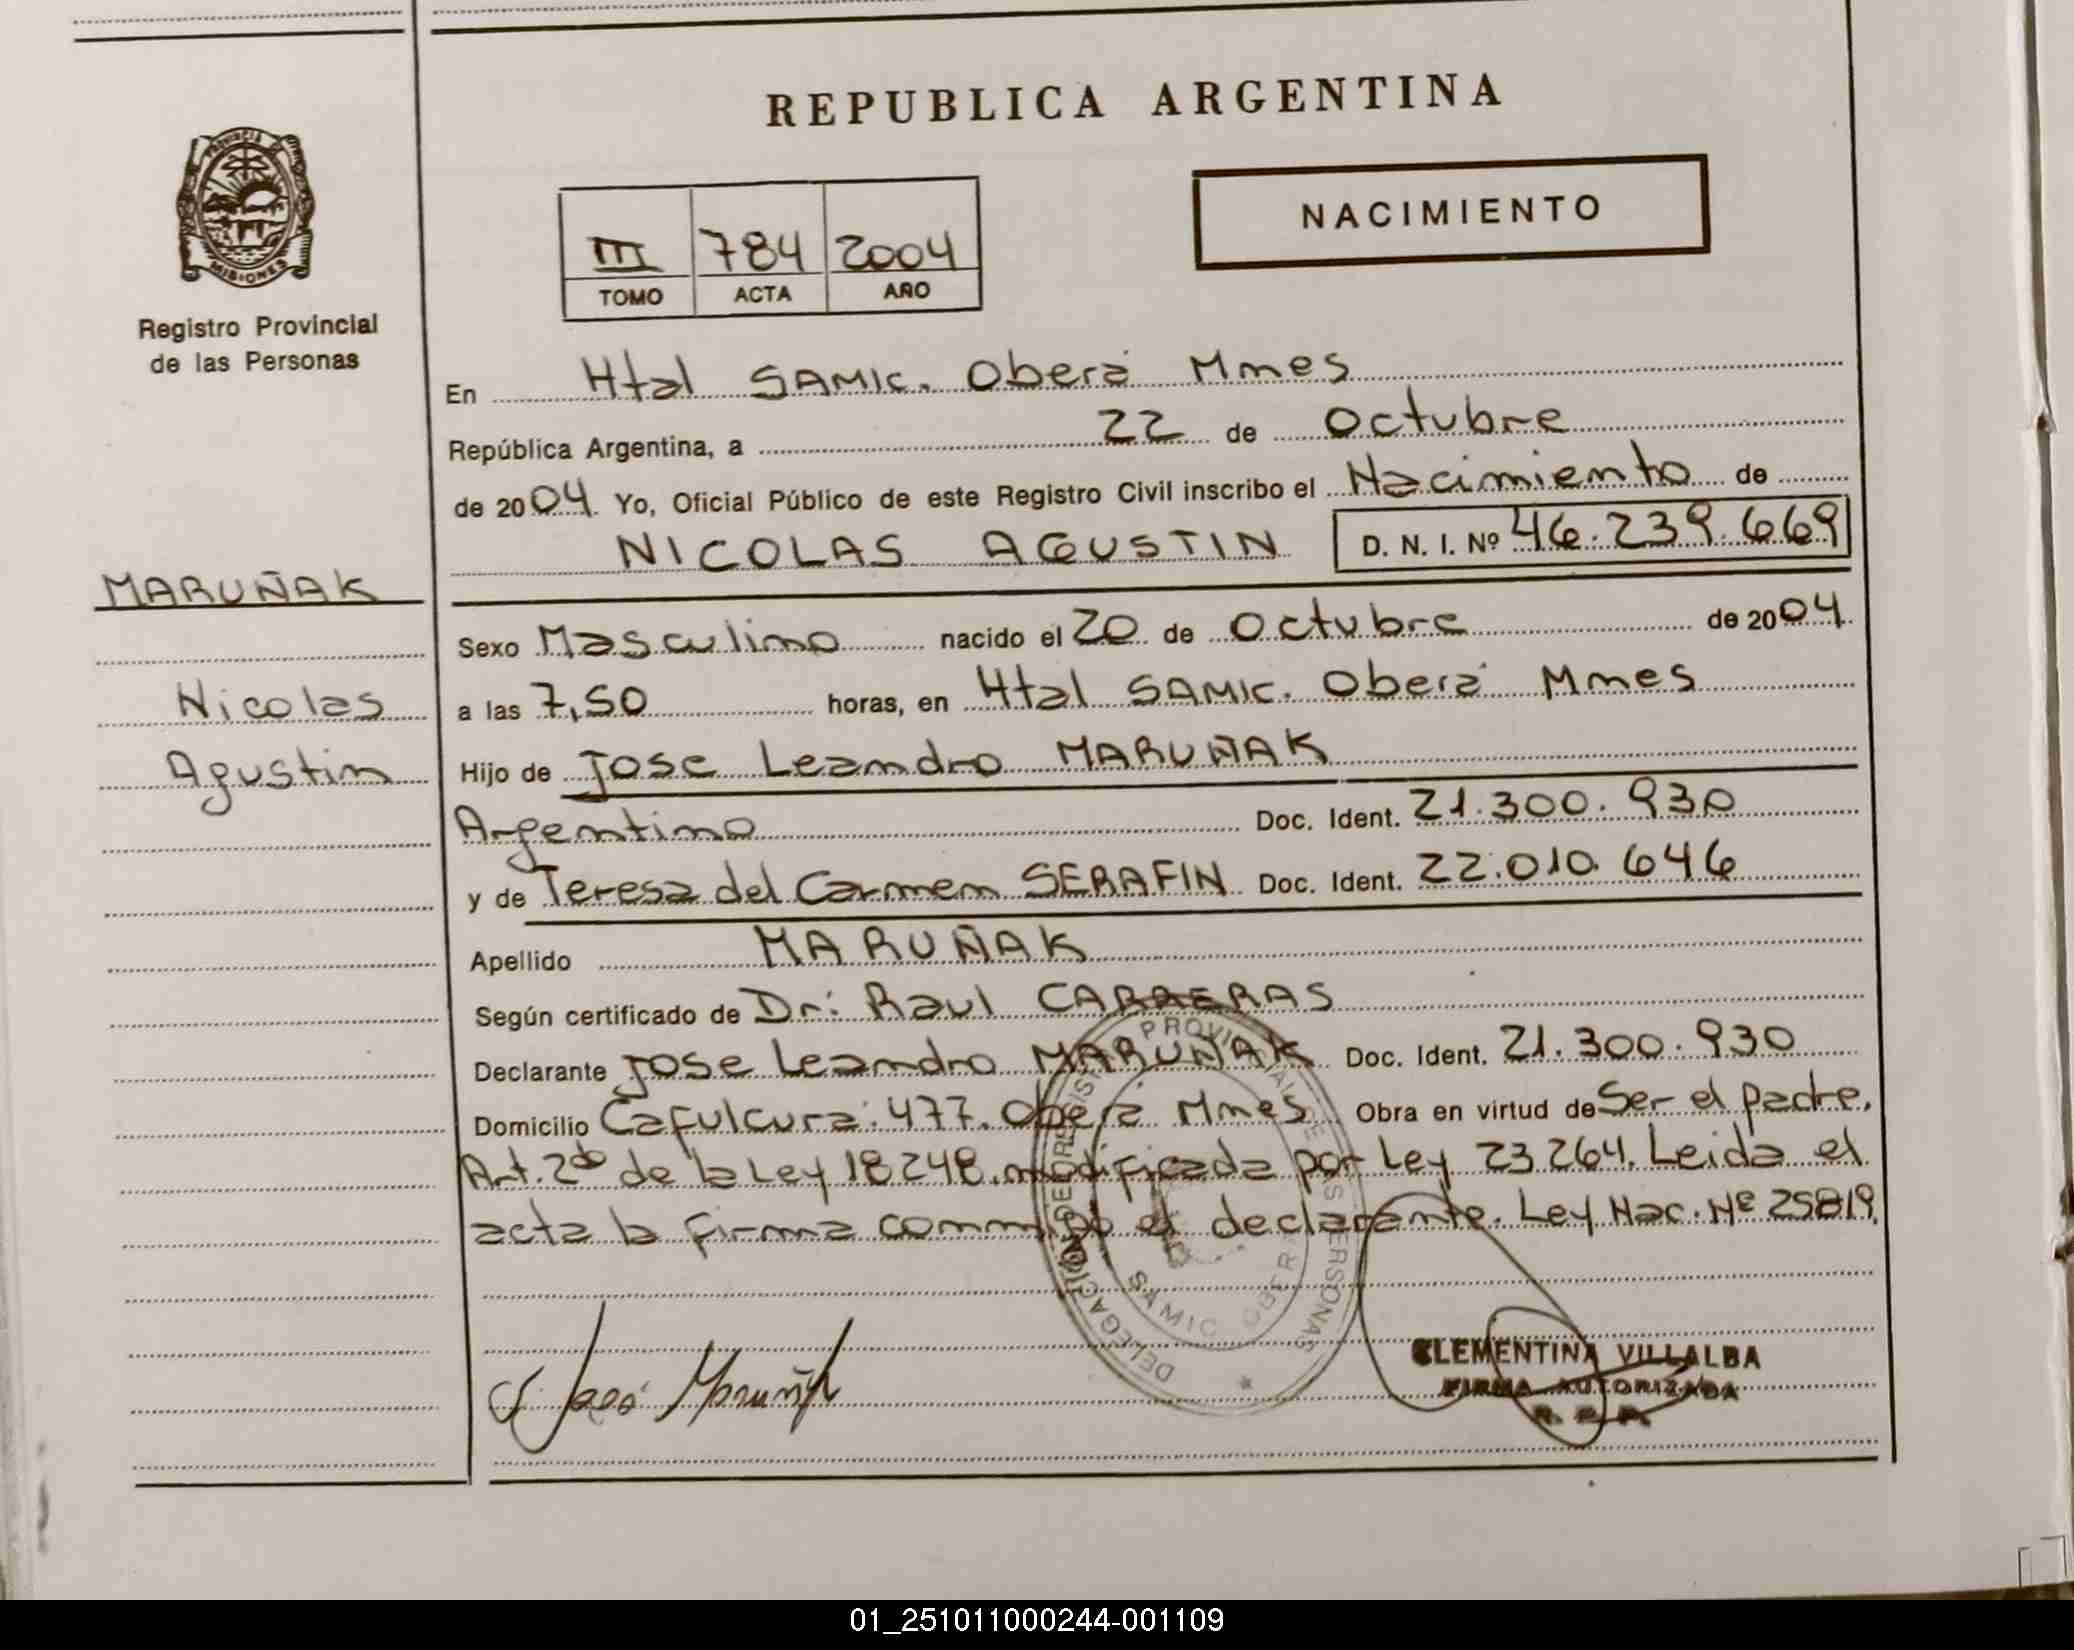 REPUBLICA ARGENTINA
PROVINCIA DE
MISIONES
Registro Provincial
de las Personas
III 784 2004
TOMO ACTA AÑO
NACIMIENTO
En Htal SAMIC. Oberá Mnes
República Argentina, a 22 de Octubre
de 2004. Yo, Oficial Público de este Registro Civil inscribo el Nacimiento de
NICOLAS AGUSTIN D. N. I. Nº 46.239.669
MARUÑAK
Nicolas
Agustin
Sexo Masculino nacido el 20 de Octubre de 2004
a las 7,50 horas, en Htal SAMIC. Oberá Mnes
Hijo de Jose Leandro MARUÑAK
Argentino Doc. Ident. 21.300.930
y de Teresa del Carmen SERAFIN Doc. Ident. 22.010.646
Apellido MARUÑAK
Según certificado de Dr: Raul CARRERAS
Declarante Jose Leandro MARUÑAK Doc. Ident. 21.300.930
Domicilio Cafulcura: 477. Oberá Mnes Obra en virtud de Ser el padre.
Art. 2do de la Ley 18248. modificada por Ley 23264. Leida el
acta la firma conmigo el declarante. Ley Nac. Nº 25819.
DELEGACION DE REGISTRO PROVINCIAL DE LAS PERSONAS
SAMIC OBERA
José Maruñak
CLEMENTINA VILLALBA
FIRMA AUTORIZADA
R. P. P.
01_251011000244-001109